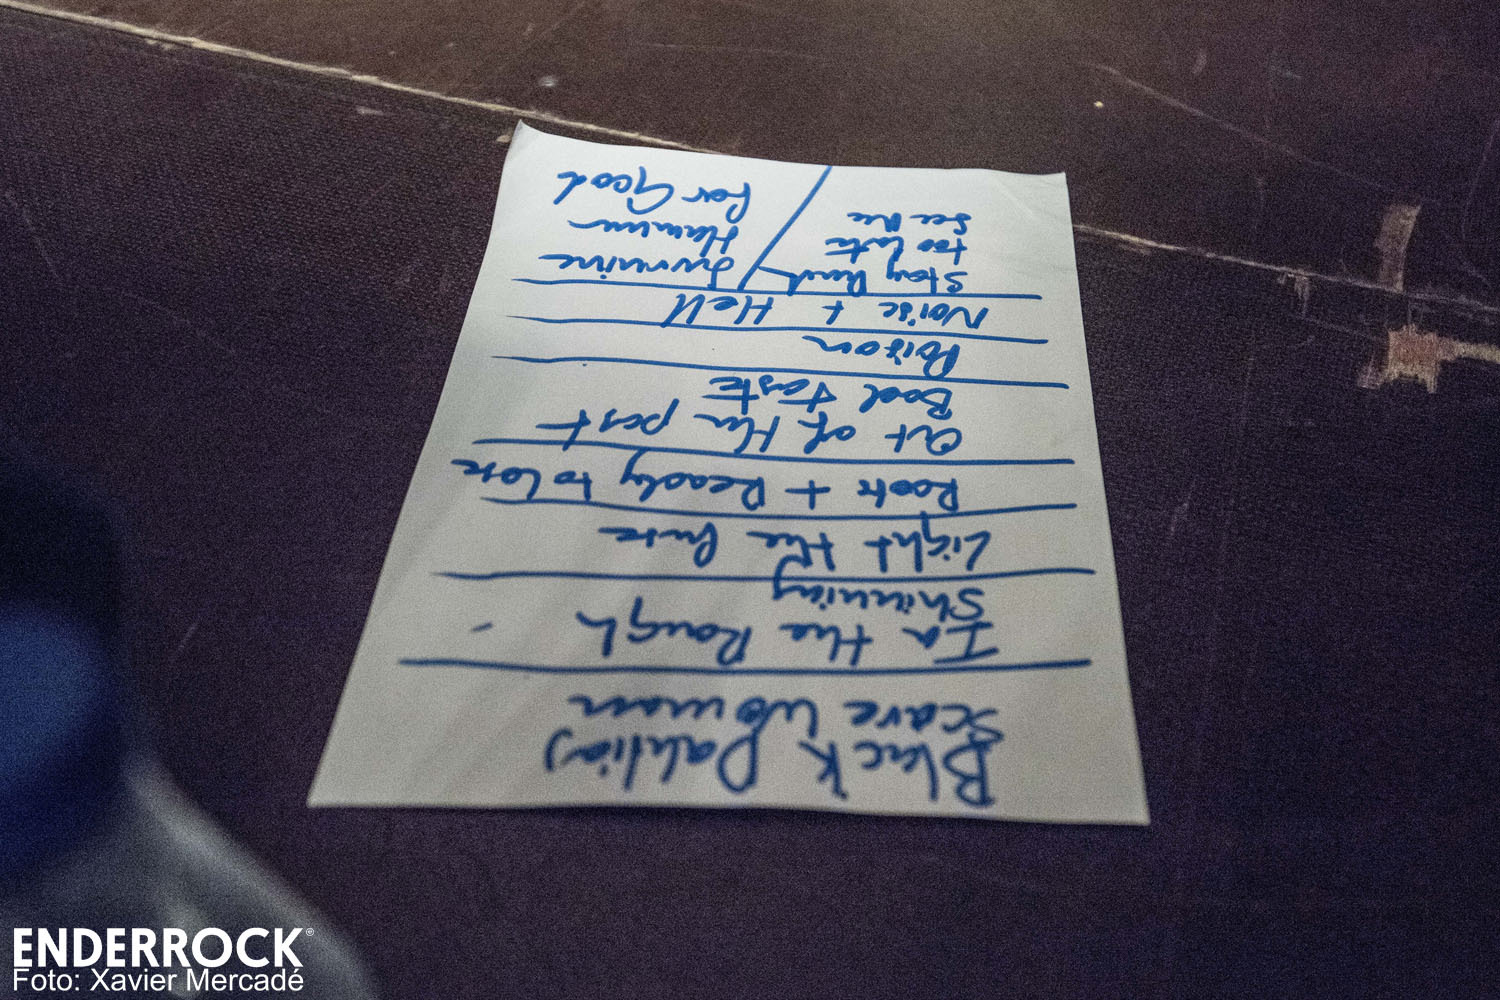 Black Dahlias
Scare Woman
In the Rough -
Shinning
Light the fuse
Roots + Ready to Lose
Out of the past
Bad taste
Poison
Noise + Hell
Stay Real
too late
See the
Hammer
For Good
ENDERROCK®
Foto: Xavier Mercadé